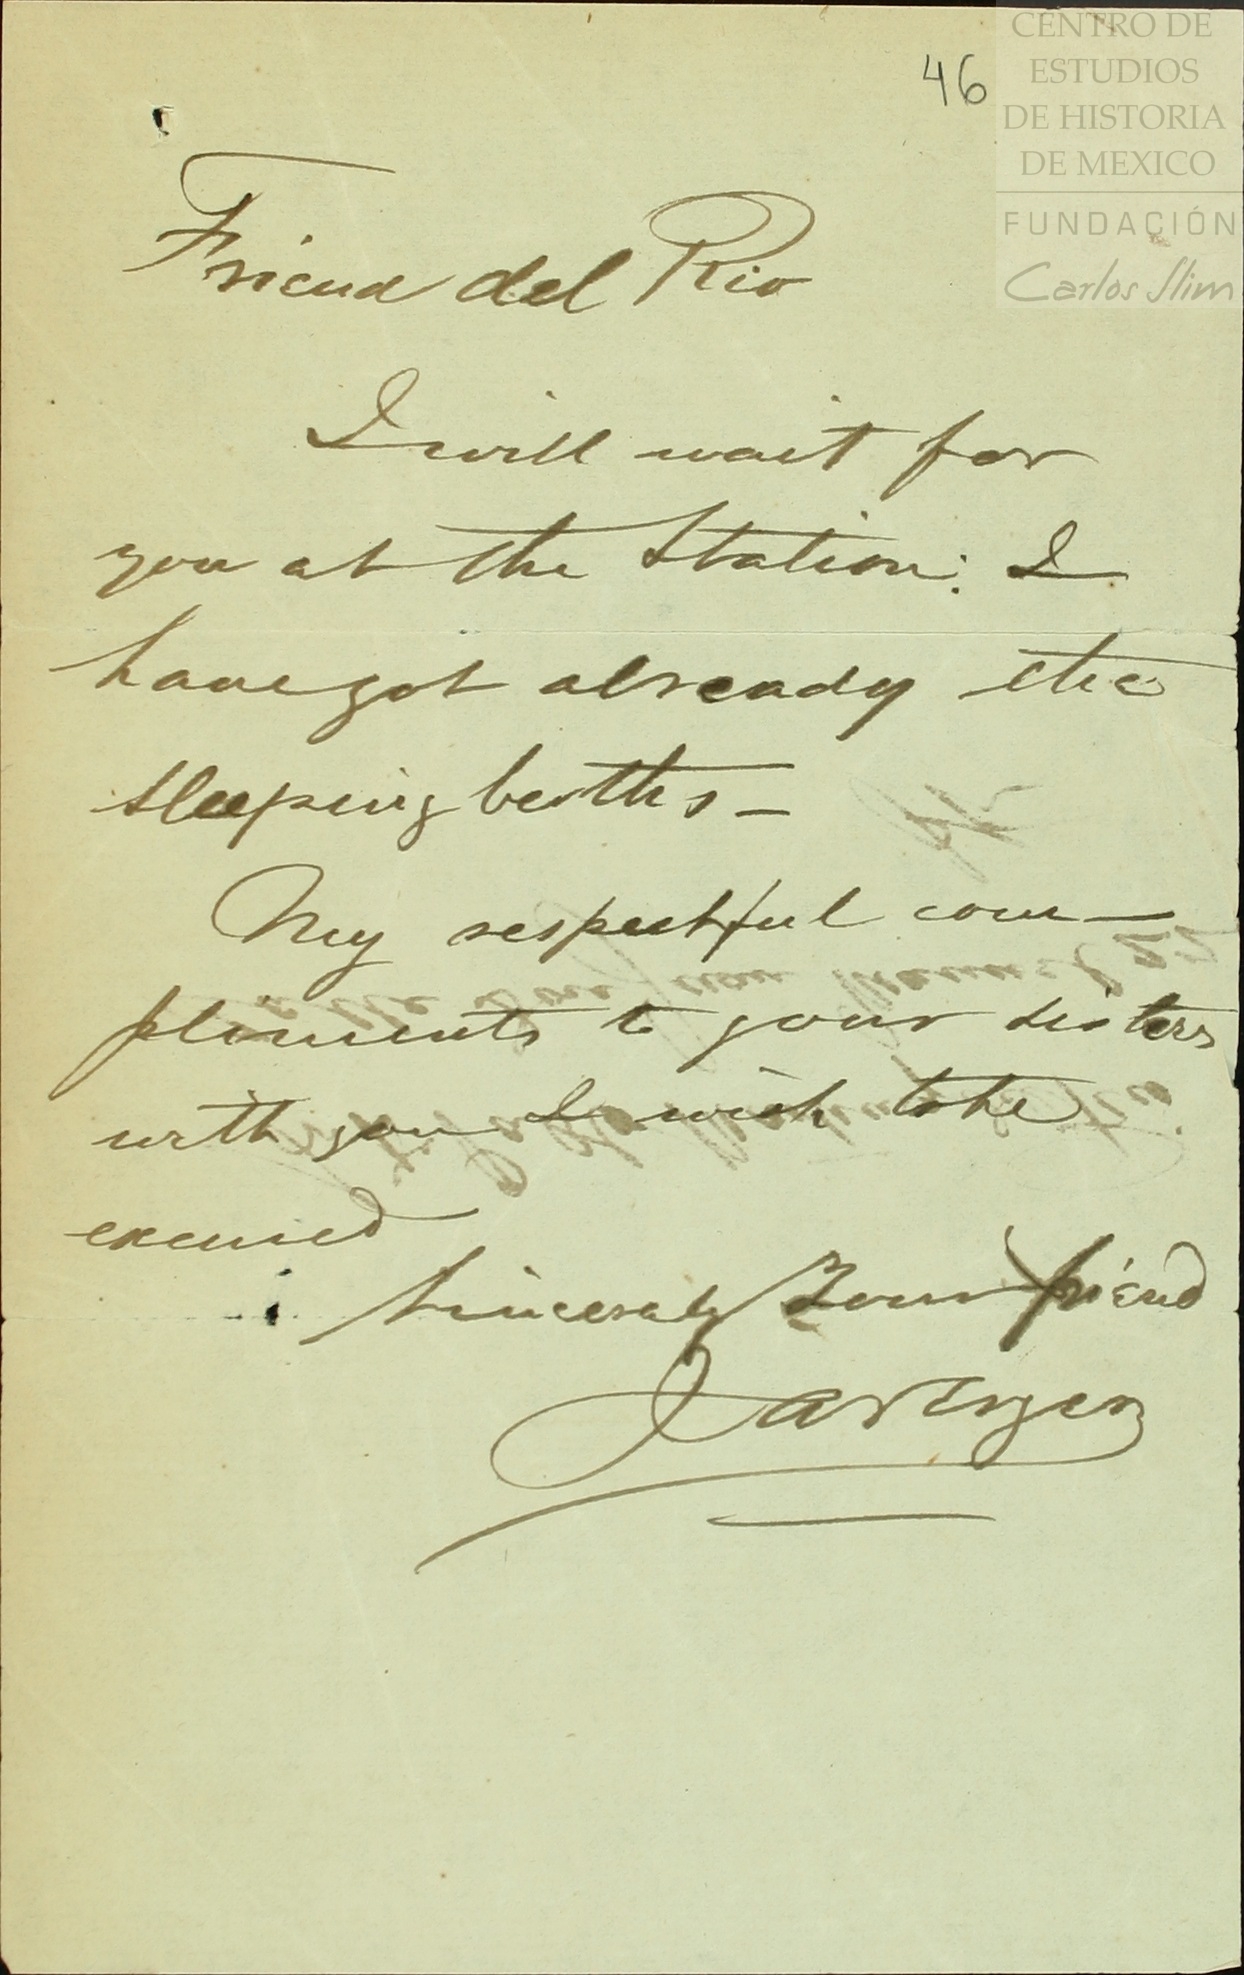 46
CENTRO DE
ESTUDIOS
DE HISTORIA
DE MEXICO
FUNDACIÓN
Carlos Slim
Friend del Rio
I will wait for
you at the Station: I
have got already the
sleeping berths –
My respectful com–
pliments to your sisters
with you I wish to be
excused
Sincerely Your friend